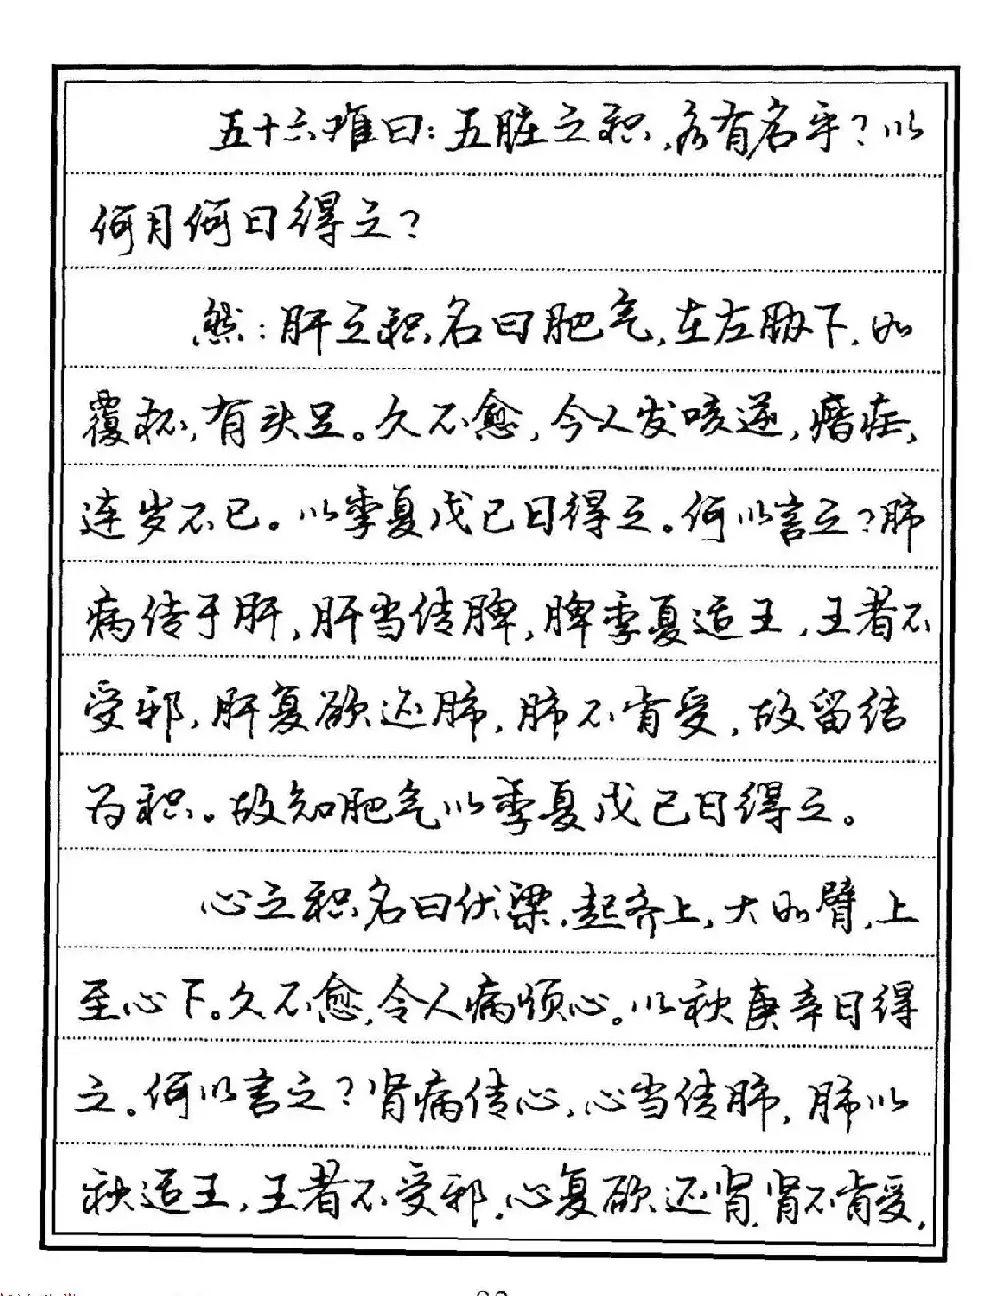 五十六难曰：五脏之积，各有名乎？以
何月何日得之？
然：肝之积，名曰肥气，在左胁下，如
覆杯，有头足。久不愈，令人发咳逆，痎疟，
连岁不已。以季夏戊己日得之。何以言之？肺
病传于肝，肝当传脾，脾季夏适王，王者不
受邪，肝复欲还肺，肺不肯受，故留结
为积。故知肥气以季夏戊己日得之。
心之积，名曰伏梁，起齐上，大如臂，上
至心下。久不愈，令人病烦心。以秋庚辛日得
之。何以言之？肾病传心，心当传肺，肺以
秋适王，王者不受邪，心复欲还肾，肾不肯受，